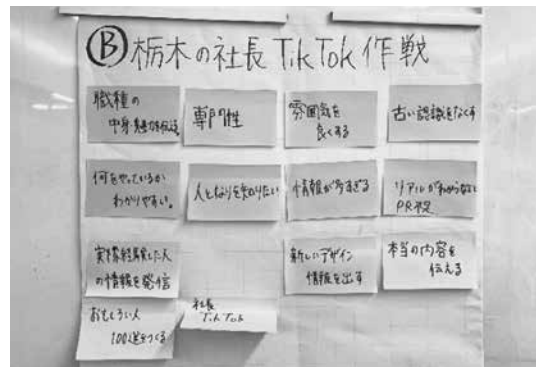 Ⓑ栃木の社長TikTok作戦
職種の
中身・魅力を伝達
専門性
雰囲気を
良くする
古い認識をなくす
何をやっているか
わかりやすい。
人となりを知りたい
情報が多すぎる
リアルがわからない
PR不足
実際経験した人
の情報を発信
新しいデザイン
情報を出す
本当の内容を
伝える
おもしろい人
100選をつくる
社長
TikTok